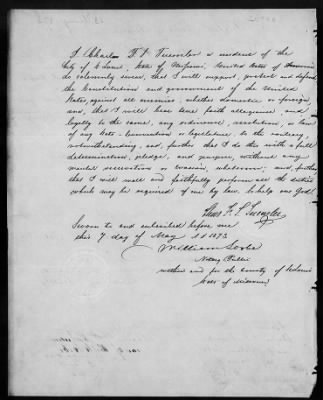 I Charles F. P. a resident of the
City of St Louis, State of Missouri, United States of America
do solemnly swear, that I will support, protect and defend
the Constitution and government of the United
States, against all enemies, whether domestic or foreign,
and, that I will bear true faith allegiance and
loyalty to the same, any ordinance, resolution, or law
of any State-Convention or legislature, to the contrary
notwithstanding, and, further that I do this with a full
determination, pledge, and purpose, without any
mental reservation or evasion, whatsoever; and, further
that I will well and faithfully perform all the duties
which may be required of me by law, So help me God.
Chas F. P.
Sworn to and subscribed before me
this 7 day of May AD 1873
William
Notary Public
within and for the County of St Louis
State of Missouri